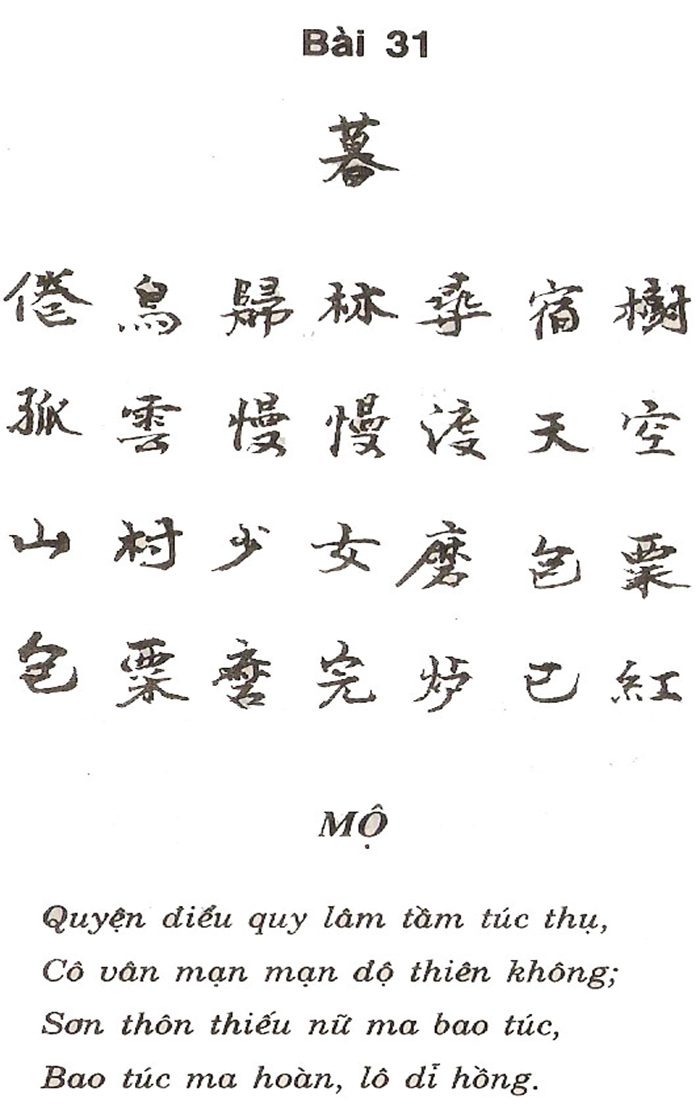 Bài 31
暮
倦鳥歸林尋宿樹
孤雲慢慢渡天空
山村少女磨包粟
包粟磨完炉已紅
MỘ
Quyện điểu quy lâm tầm túc thụ,
Cô vân mạn mạn độ thiên không;
Sơn thôn thiếu nữ ma bao túc,
Bao túc ma hoàn, lô dỉ hồng.